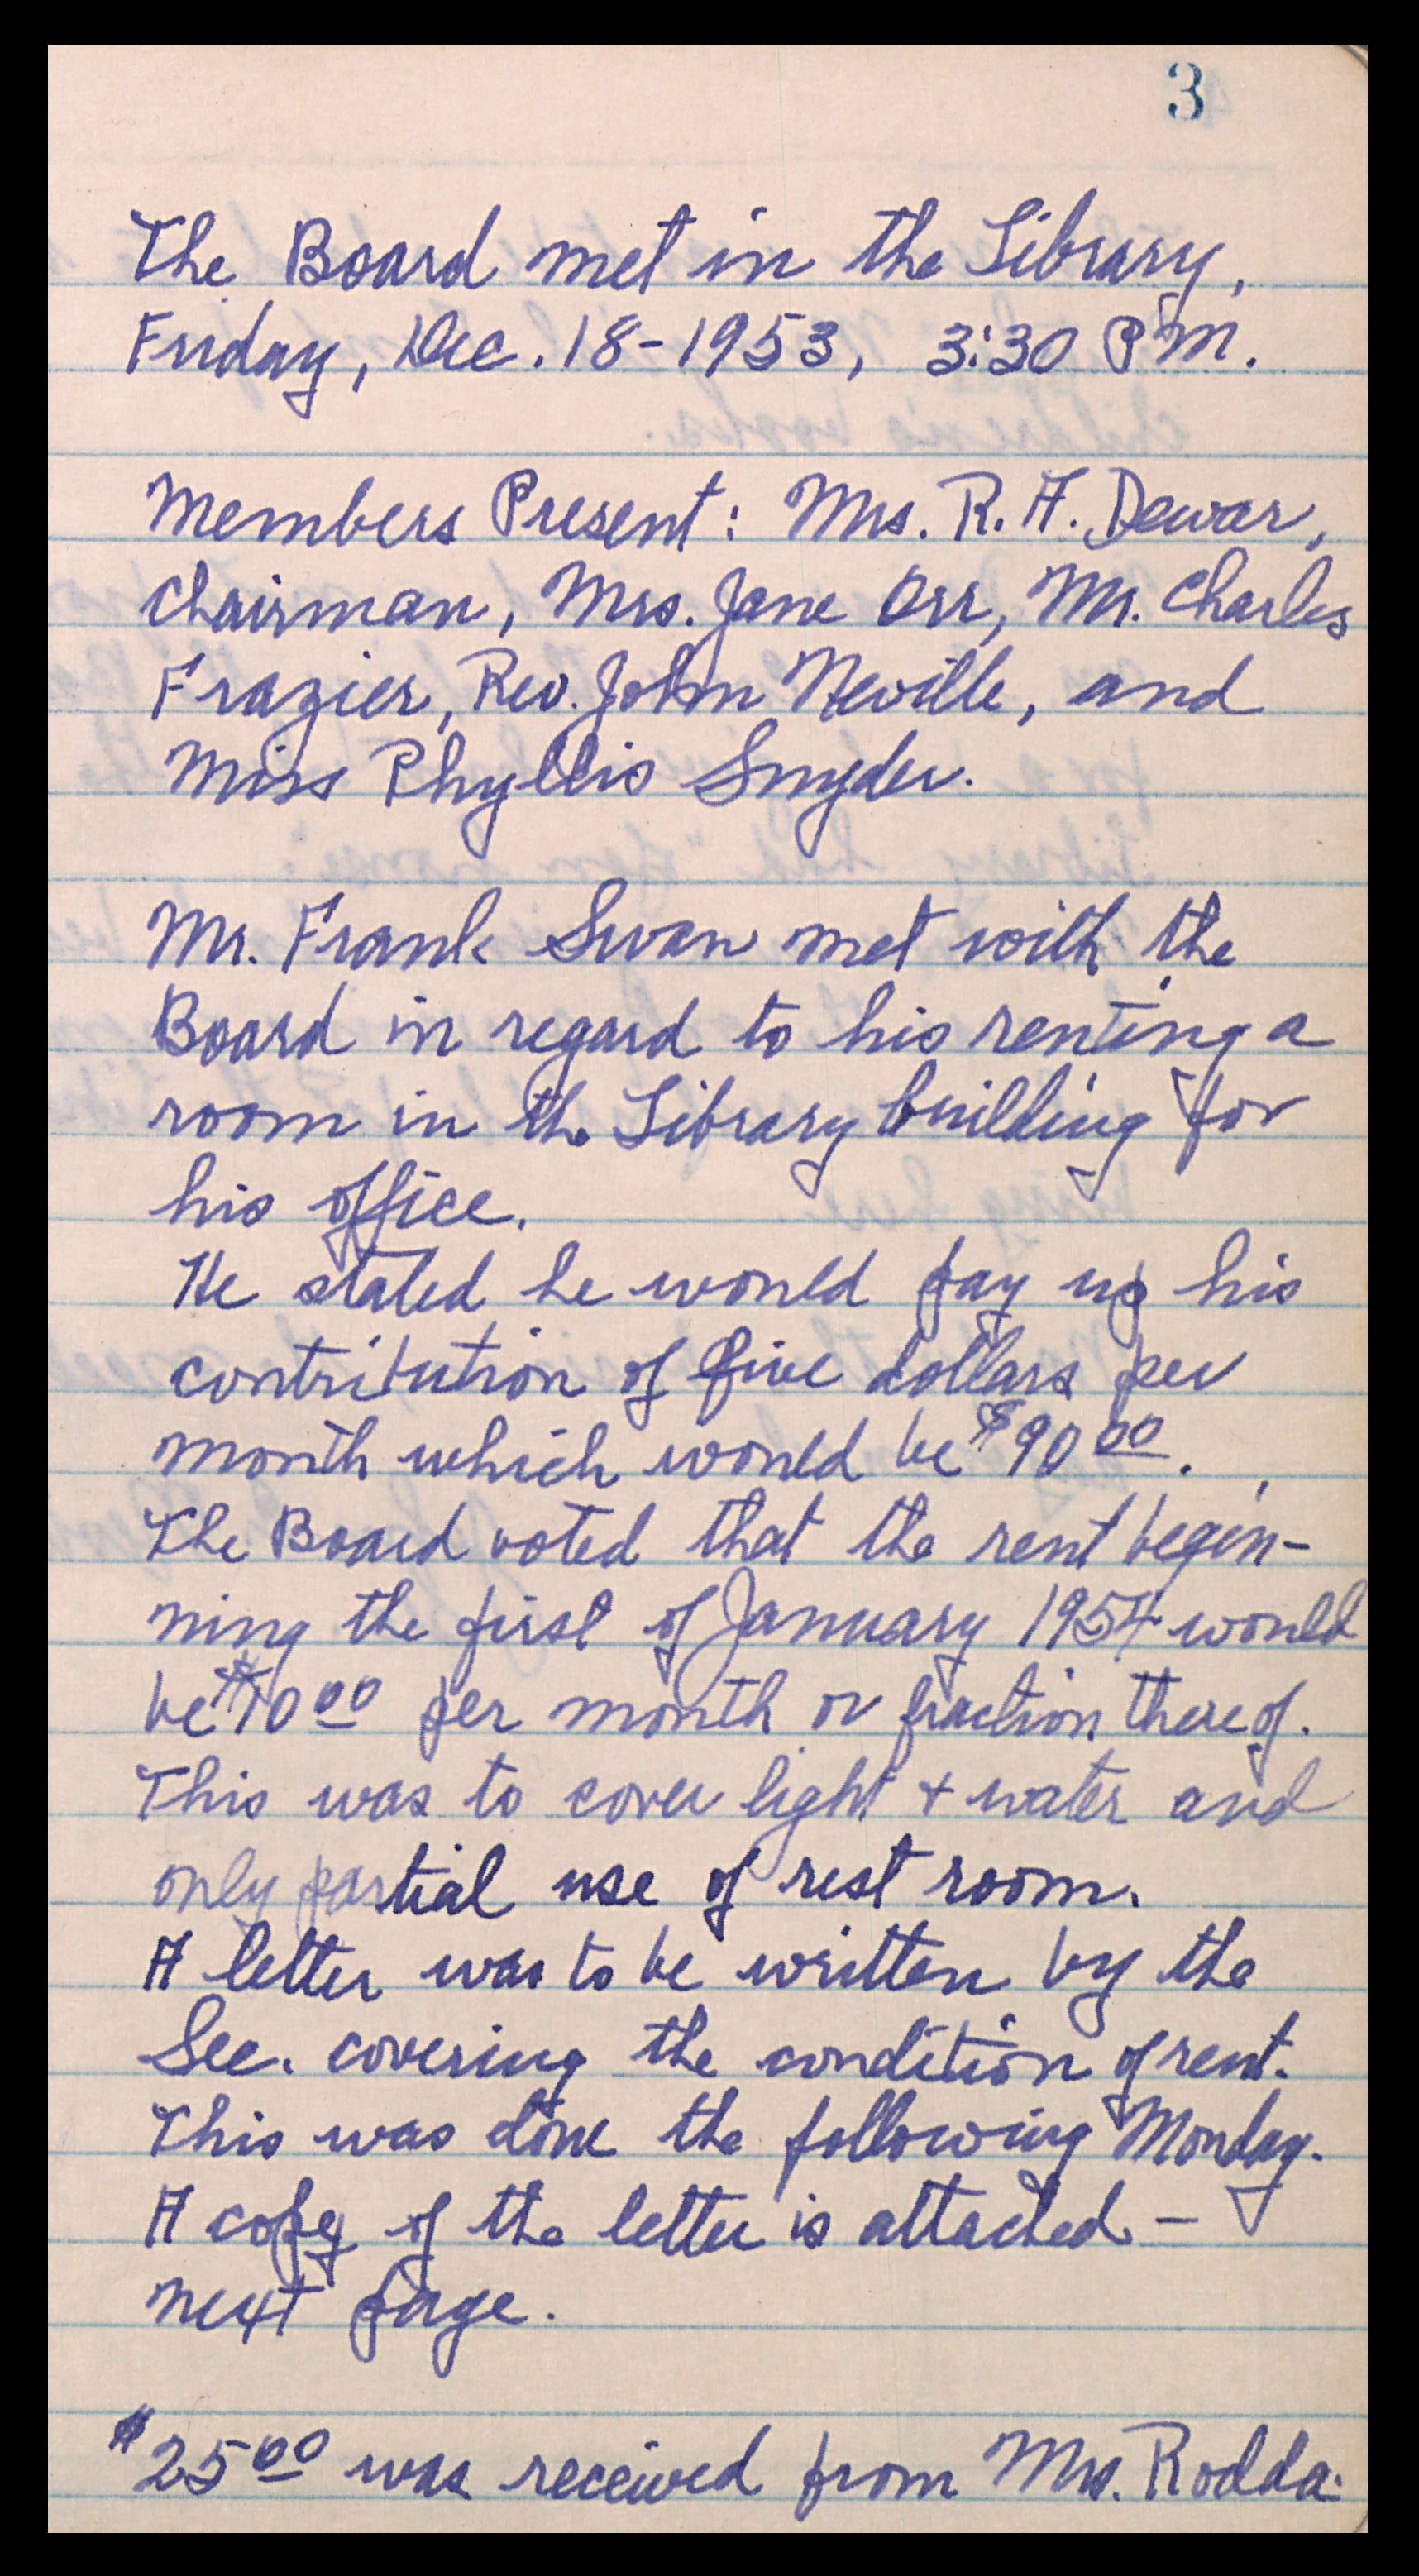 3
The Board met in the Library,
Friday, Dec. 18-1953, 3:30 P.M.
Members Present: Mrs. R. A. Dewar,
Chairman, Mrs. Jane Orr, Mr. Charles
Frazier, Rev. John Neville, and
Miss Phyllis Snyder.
Mr. Frank Swan met with the
Board in regard to his renting a
room in the Library building for
his office.
He stated he would pay up his
contribution of five dollars per
month which would be $90 00.
The Board voted that the rent begin-
ning the first of January 1954 would
be $10 00 per month or fraction there of.
This was to cover light + water and
only partial use of rest room.
A letter was to be written by the
Sec. covering the condition of rent.
This was done the following Monday.
A copy of the letter is attached -
next page.
$25 00 was received from Mrs. Rodda.